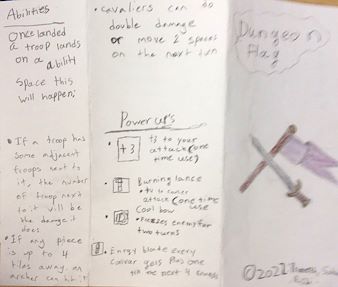 Abilities
Once landed
a troop lands
on a ability
space this
will happen:
• If a troop has
some adjacent
troops next to
it, the number
of troop next
to it will be
the damage it
does
• If any piece
is up to 4
tiles away an
archer can hit it
• Cavaliers can do
double damage
or move 2 spaces
on the next turn
Power up's
+3
+3 to your
attack (one
time use)
Burning lance
attack (one time
use
Cool bow
• Freezes enemy for
two turns
blade every
gets plus one
next 4
Dungeon
Flag
©2022